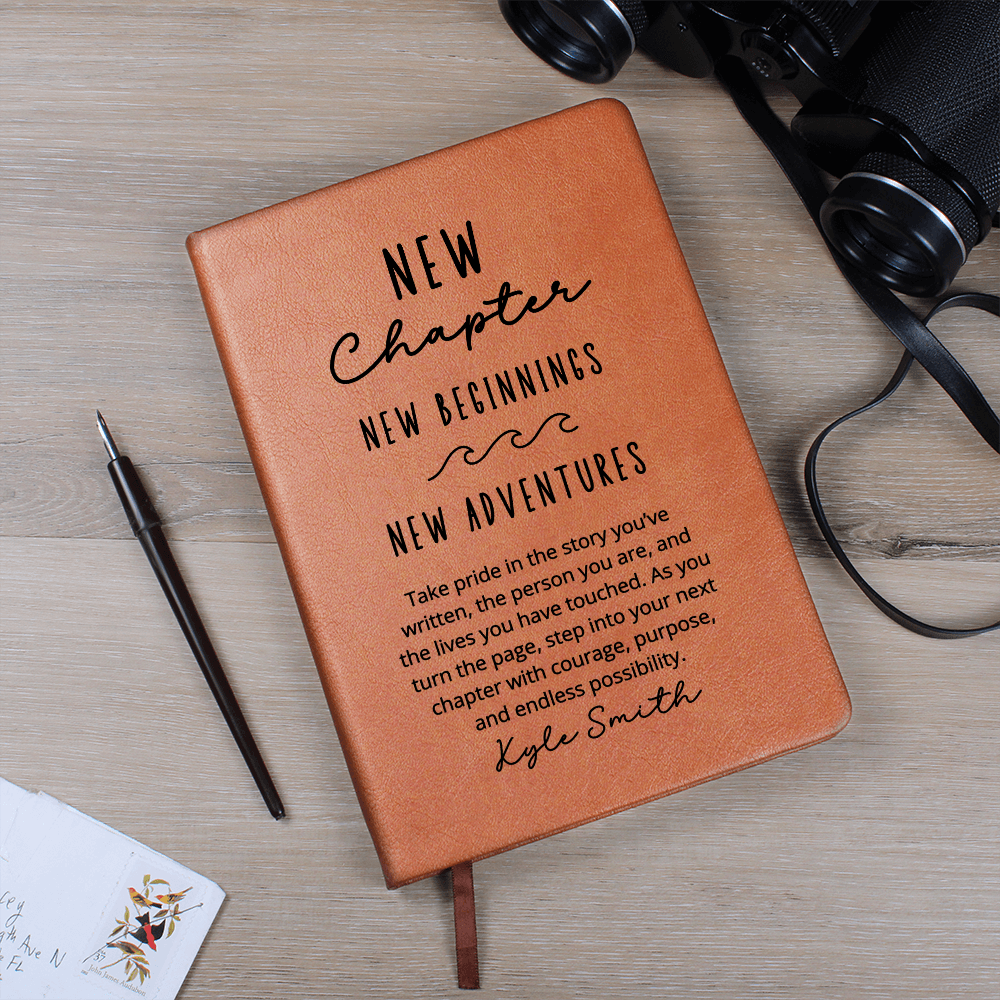 NEW
Chapter
NEW BEGINNINGS
NEW ADVENTURES
Take pride in the story you've
written, the person you are, and
the lives you have touched. As you
turn the page, step into your next
chapter with courage, purpose,
and endless possibility.
Kyle Smith
Ave N
FL
37
John James Audubon